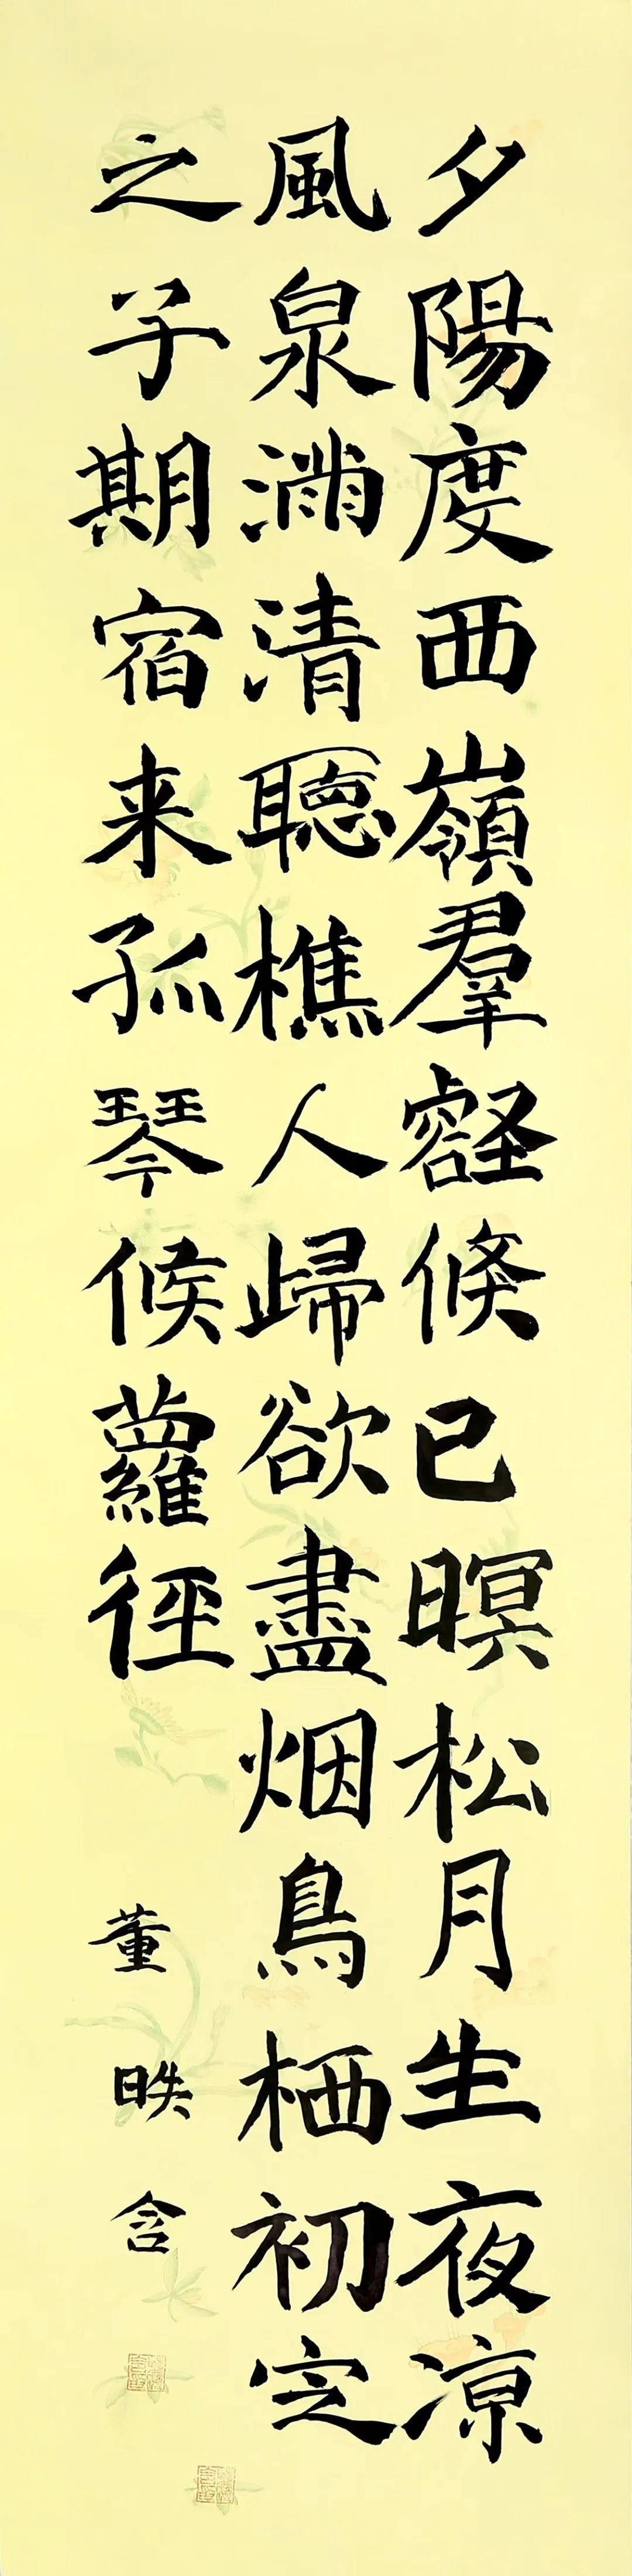 夕陽度西嶺羣壑倏已暝松月生夜凉
風泉滿清聽樵人歸欲盡烟鳥栖初定
之子期宿来孤琴候蘿徑
董昳含